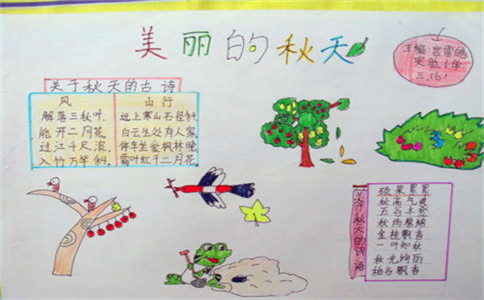 美丽的秋天
主编:
实验小学
三.(6)
关于秋天的古诗
风
解落三秋叶.
能开二月花.
过江千尺浪.
入竹万竿斜.
山行
远上寒山石径斜.
白云生处有人家.
停车坐爱枫林晚.
霜叶红于二月花.
关于秋天的词语
硕果累累
秋高气爽
五谷丰登
秋雨绵绵
金桂飘香
一叶知秋
秋光绚丽
稻谷飘香